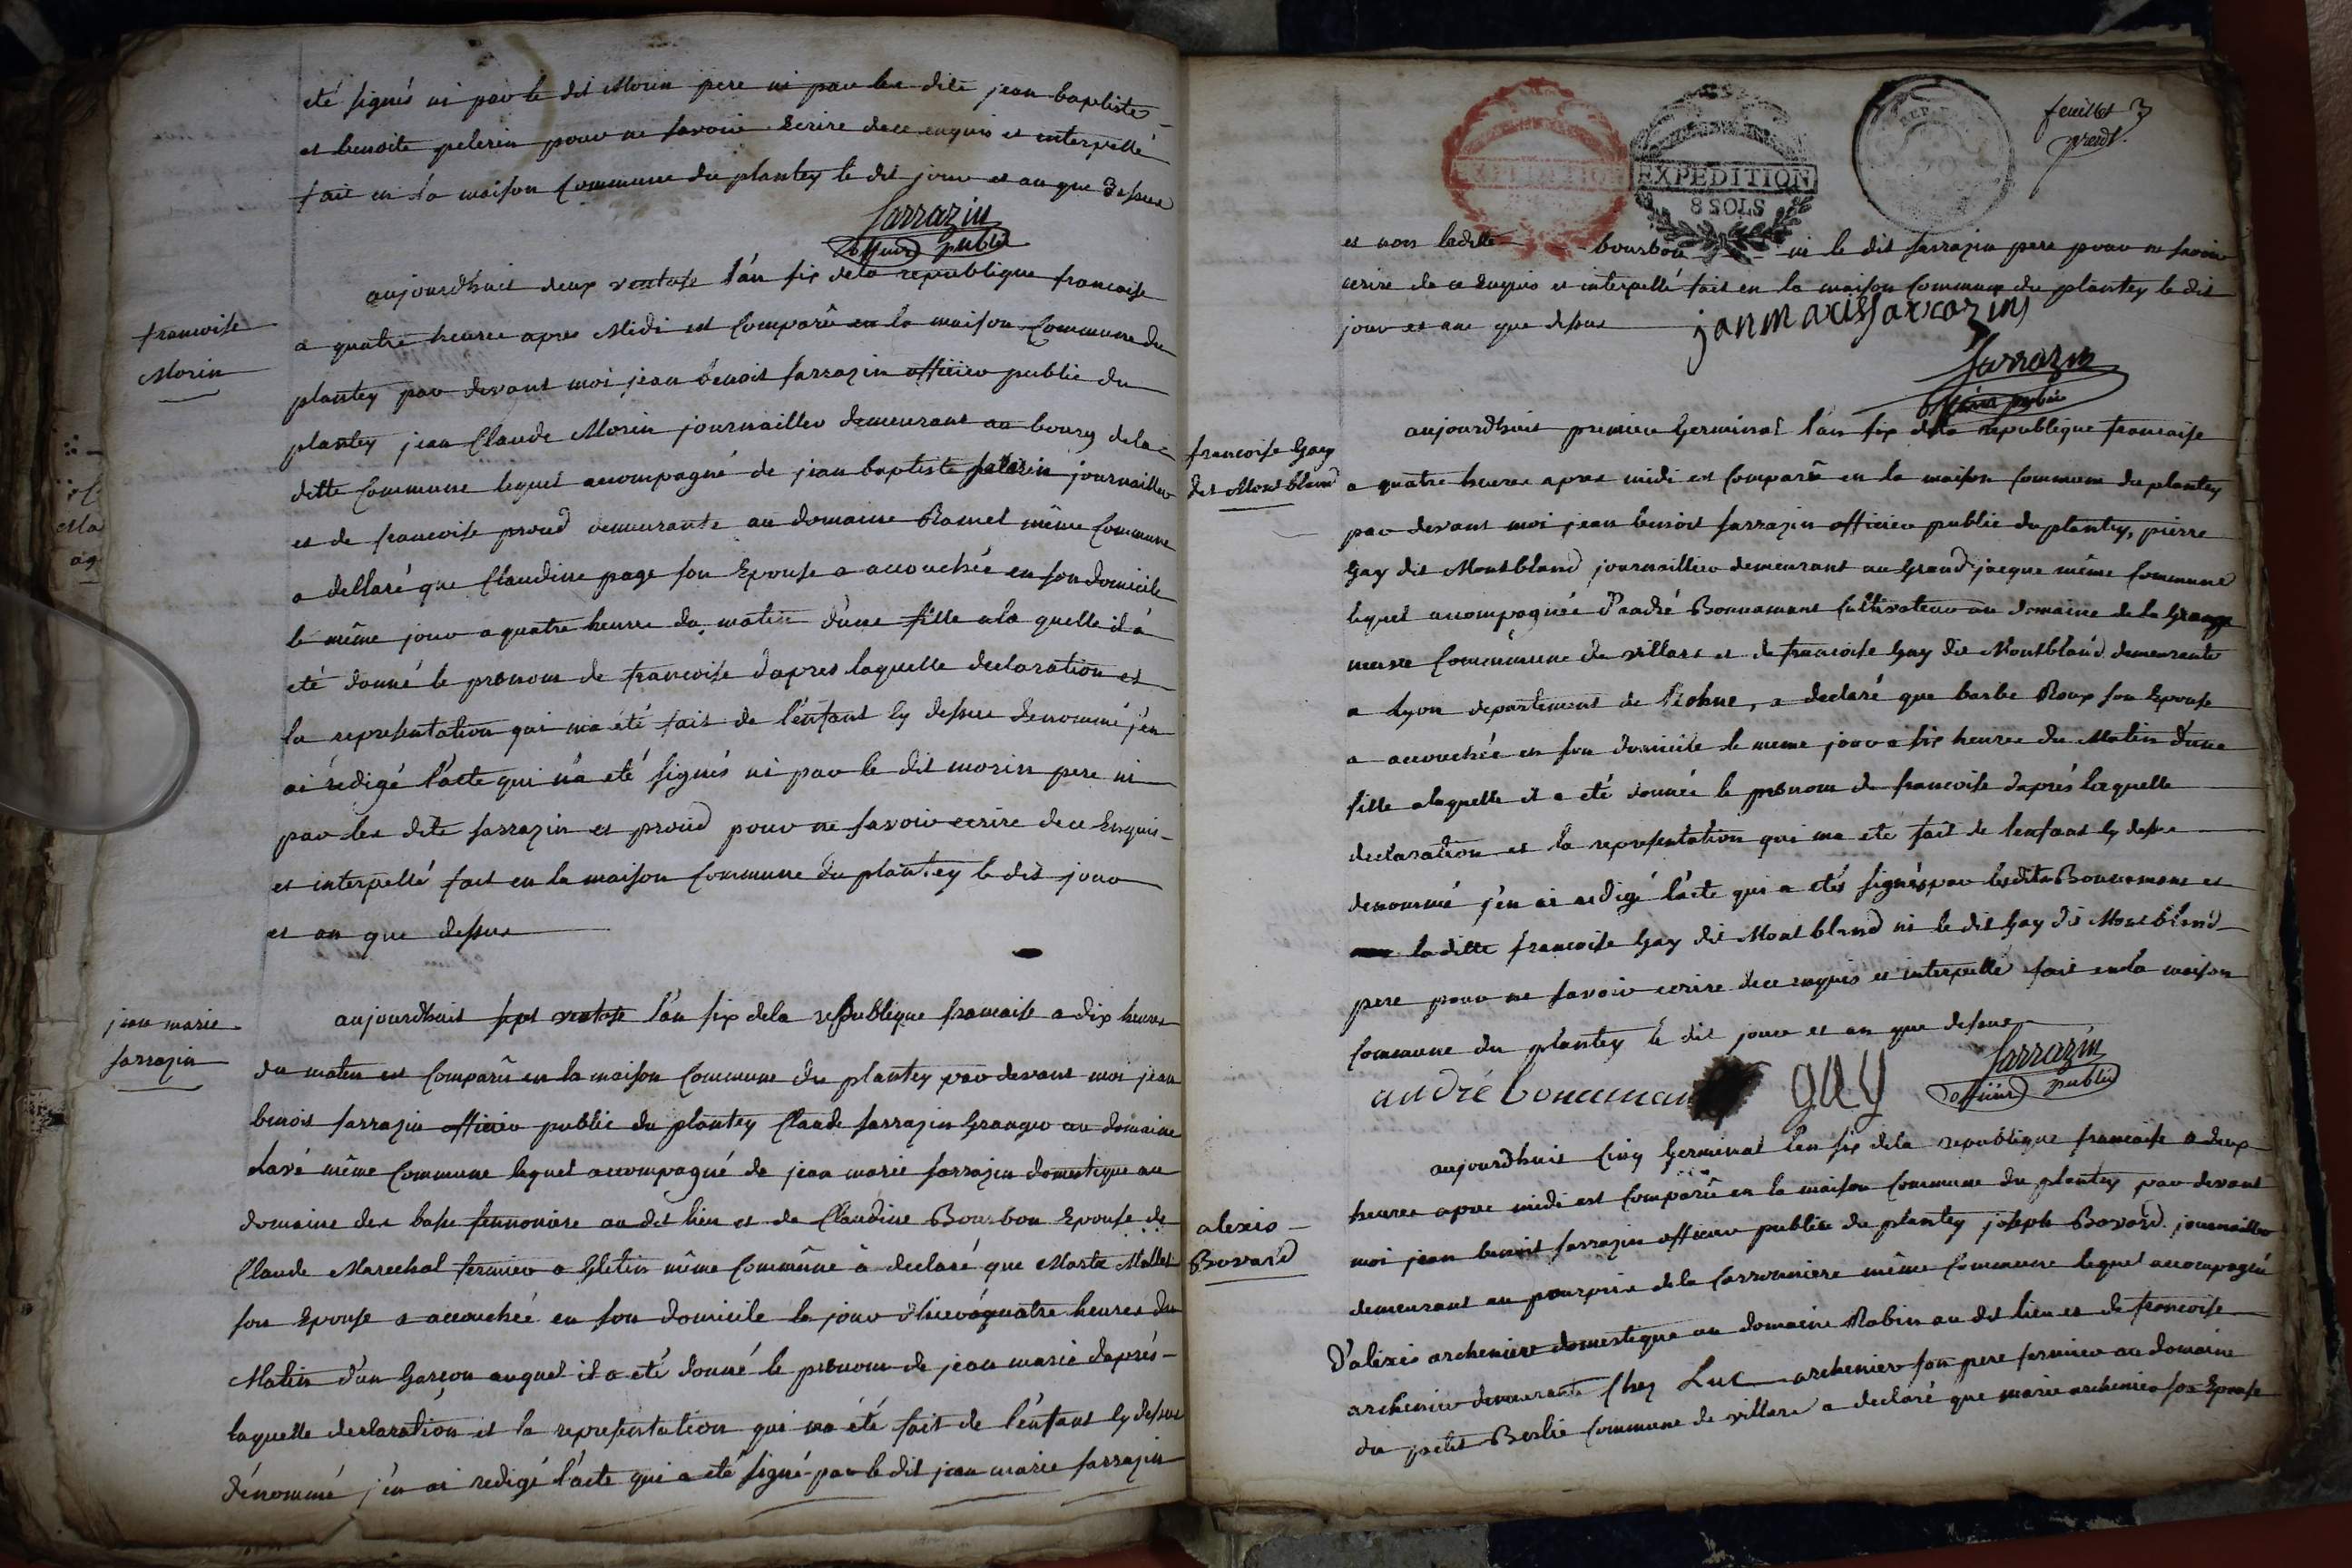 eté signés ni par le dit Morin pere ni par les dits jean baptiste
et benoite pelerin pour ne savoir Ecrire de ce enquis et interpellé
fait en la maison Commune du plantey le dit jour et an que dessus
Sarrazin
officier public
francoise
Morin
aujourdhuit deux ventose l'an six de la republique francaise
a quatre heures apres Midi est Comparû en la maison Commune du
plantey par devant moi jean benoit sarrazin officier public du
plantey jean Claude Morin journaillier demeurant au bourg de la
ditte Commune lequel accompagné de jean baptiste journaillier
et de francoise proud demeurante au domaine Ramel même Commune
a dellaré que Claudine page son Epouse a accouchée en son domicile
le même jour a quatre heures du matin d'une fille a la quelle il a
eté donné le prenom de francoise d'apres laquelle declaration et
la representation qui m'a été fait de l'enfant cy dessus denommé j'en
ai redigé l'acte qui n'a eté signés ni par le dit morin pere ni
par les dits sarrazin et proud pour ne savoir ecrire de ce Enquis
et interpellé fait en la maison Commune du plantey le dit jour
et an que dessus
jean marie
sarrazin
aujourdhuit sept ventose l'an six de la republique francaise a dix heures
du matin est Comparû en la maison Commune du plantey par devant moi jean
benoit sarrazin officier public du plantey Claude sarrazin Granger au domaine
même Commune lequel accompagné de jean marie sarrazin domestique au
domaine des basse au dit lieu et de Claudine Bourbon Epouse de
Claude Marechal fermier a Gletin même Commune à declaré que Marte Mallet
son Epouse a accouchée en son domicile le jour d'hier à quatre heures du
Matin d'un Garçon auquel il a eté donné le prenom de jean marie d'aprés
laquelle declaration et la representation qui m'a été fait de l'enfant cy dessus
dénommé j'en ai redigé l'acte qui a eté signé par le dit jean marie sarrazin
EXPEDITION
EXPEDITION
8 SOLS
REP.
feuillet 3
et non laditte bourbon ni le dit sarrazin pere pour ne savoir
ecrire de ce Enquis et interpellé fait en la maison Commune du plantey le dit
jour et an que dessus
janmarissarrazins
Sarrazin
officier public
francoise Gay
dit Montbland
aujourdhuit premier Germinal l'an six de la republique francaise
a quatre heures apres midi est Comparû en la maison Commune du plantey
par devant moi jean benoit sarrazin officier public du plantey, pierre
Gay dit Montbland journaillier demeurant au Grand jacque même Commune
lequel accompagnée d'andré Bonnamant Cultivateur au domaine de la Grange
neuve Commune de villars et de francoise Gay dit Montbland demeurante
a lyon departement de Rohne, a declaré que barbe Roux son Epouse
a accouchée en son domicile le meme jour a six heures du Matin d'une
fille a laquelle il a eté donnée le prenom de francoise d'aprés laquelle
declaration et la representation qui ma eté fait de l'enfant cy dessus
denommé j'en ai redigé l'acte qui a etés signés par les dits Bonnamant et
laditte francoise Gay dit Montbland ni le dit Gay dit Montbland
pere pour ne savoir ecrire de ce enquis et interpellé fait en la maison
Commune du plantey le dit jour et an que dessus
andré bonaman gay
Sarrazin
officier public
alexis
Bovard
aujourdhuit Cinq Germinal l'an six de la republique francaise a deux
heures apres midi est Comparû en la maison Commune du plantey par devant
moi jean benoit sarrazin officier public du plantey joseph Bovard journaillier
demeurant au pourprix de la même Commune lequel accompagné
D'alexis archenier domestique au domaine Robin au dit lieu et de francoise
archenier demeurante Chez Luc archenier son pere fermier au domaine
du petit Berlie Commune de villars a declaré que marie archenier son Epouse